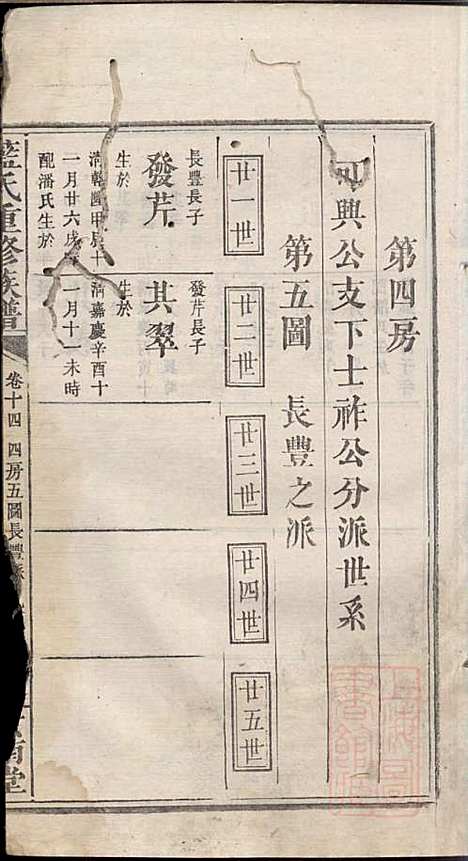 第四房
可興公支下士祚公分派世系
第五圖 長豐之派
廿一世
廿二世
廿三世
廿四世
廿五世
長豐長子
發芹
生於
清乾隆甲辰十
一月廿六戌
配潘氏生於
發芹長子
其翠
生於
清嘉慶辛酉十
一月十一未時
氏重修族譜
卷十四 四房五圖長豐派
堂